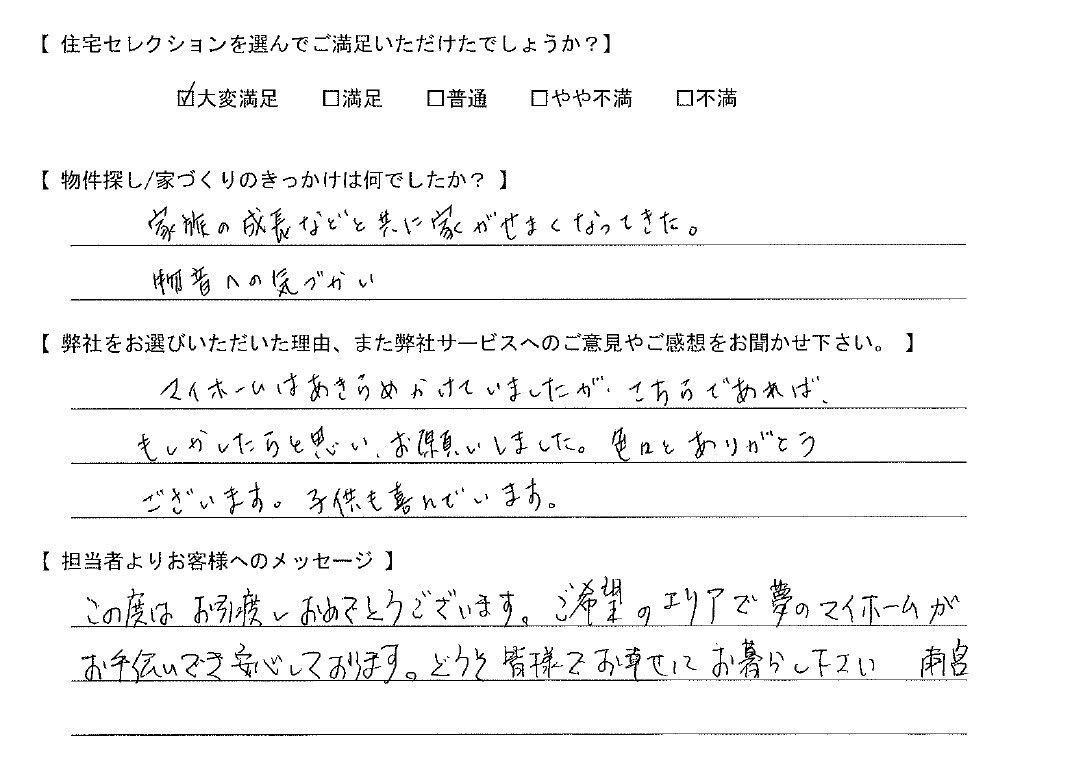 【 住宅セレクションを選んでご満足いただけたでしょうか？】
☑大変満足 □満足 □普通 □やや不満 □不満
【 物件探し/家づくりのきっかけは何でしたか？ 】
家族の成長などと共に家がせまくなってきた。
物音への気づかい
【 弊社をお選びいただいた理由、また弊社サービスへのご意見やご感想をお聞かせ下さい。 】
マイホームはあきらめかけていましたが、こちらであれば、
もしかしたらと思い、お願いしました。色々とありがとう
ございます。子供も喜んでいます。
【 担当者よりお客様へのメッセージ 】
この度は お引渡しおめでとうございます。ご希望のエリアで夢のマイホームが
お手伝いでき安心しております。どうぞ皆様でお幸せに お暮らし下さい 南宮